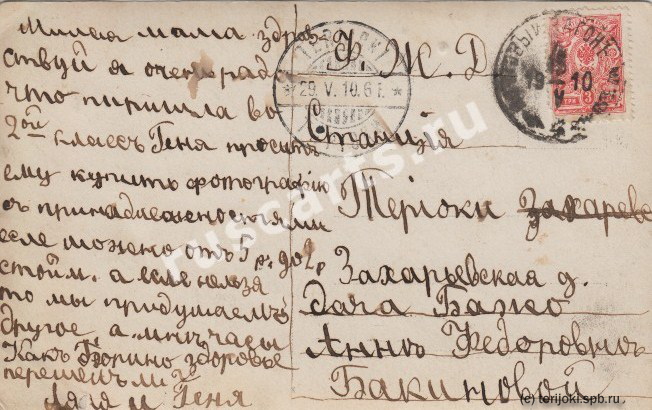 Милая мама здрав-
ствуй я очень рад
что перешла во
2ой классъ Геня просить
ему купить фотографію
съ принадлежностями
если можено отъ 5 р. до 2 р
стоим. а если нельзя
то мы придумаемъ
другое а мнѣ часы
Какъ Борино здоровье
перешелъ ли
Ляля и Геня
Ф. Ж. Д
Станція
Теріоки
Захарьевская д.
дача Бажко
Аннѣ Федоровнѣ
Бакиновой
29. V. 10. 6
10
V
3
ruscarts.ru
(c) terijoki.spb.ru